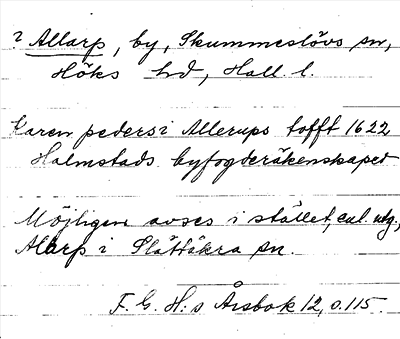 ? Allarp, by, Skummeslövs sn,
Höks hd, Hall. l.
Karen pedersi Allerups tofft 1622
Halmstads byfogderäkenskaper
Möjligen avses i stället, enl. utg.,
Allarp i Slättåkra sn.
F. G. H:s Årsbok 12, s. 115.